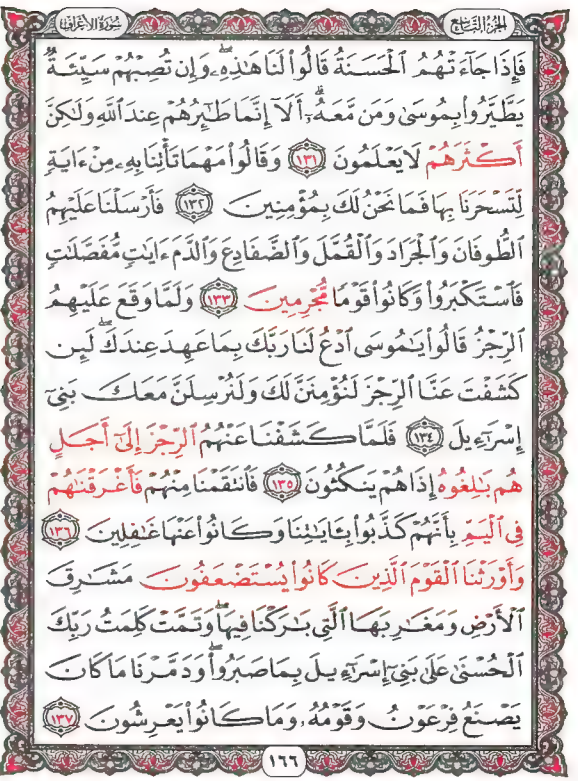 سُورَةُ الأَعْرَافِ الجُزْءُ التَّاسِعُ
فَإِذَا جَآءَتْهُمُ ٱلْحَسَنَةُ قَالُوا۟ لَنَا هَـٰذِهِۦ ۖ وَإِن تُصِبْهُمْ سَيِّئَةٌ
يَطَّيَّرُوا۟ بِمُوسَىٰ وَمَن مَّعَهُۥٓ ۗ أَلَآ إِنَّمَا طَـٰٓئِرُهُمْ عِندَ ٱللَّهِ وَلَـٰكِنَّ
أَكْثَرَهُمْ لَا يَعْلَمُونَ ١٣١ وَقَالُوا۟ مَهْمَا تَأْتِنَا بِهِۦ مِنْ ءَايَةٍ
لِّتَسْحَرَنَا بِهَا فَمَا نَحْنُ لَكَ بِمُؤْمِنِينَ ١٣٢ فَأَرْسَلْنَا عَلَيْهِمُ
ٱلطُّوفَانَ وَٱلْجَرَادَ وَٱلْقُمَّلَ وَٱلضَّفَادِعَ وَٱلدَّمَ ءَايَـٰتٍ مُّفَصَّلَـٰتٍ
فَٱسْتَكْبَرُوا۟ وَكَانُوا۟ قَوْمًا مُّجْرِمِينَ ١٣٣ وَلَمَّا وَقَعَ عَلَيْهِمُ
ٱلرِّجْزُ قَالُوا۟ يَـٰمُوسَى ٱدْعُ لَنَا رَبَّكَ بِمَا عَهِدَ عِندَكَ ۖ لَئِن
كَشَفْتَ عَنَّا ٱلرِّجْزَ لَنُؤْمِنَنَّ لَكَ وَلَنُرْسِلَنَّ مَعَكَ بَنِىٓ
إِسْرَٰٓءِيلَ ١٣٤ فَلَمَّا كَشَفْنَا عَنْهُمُ ٱلرِّجْزَ إِلَىٰٓ أَجَلٍ
هُم بَـٰلِغُوهُ إِذَا هُمْ يَنكُثُونَ ١٣٥ فَٱنتَقَمْنَا مِنْهُمْ فَأَغْرَقْنَـٰهُمْ
فِى ٱلْيَمِّ بِأَنَّهُمْ كَذَّبُوا۟ بِـَٔايَـٰتِنَا وَكَانُوا۟ عَنْهَا غَـٰفِلِينَ ١٣٦
وَأَوْرَثْنَا ٱلْقَوْمَ ٱلَّذِينَ كَانُوا۟ يُسْتَضْعَفُونَ مَشَـٰرِقَ
ٱلْأَرْضِ وَمَغَـٰرِبَهَا ٱلَّتِى بَـٰرَكْنَا فِيهَا ۖ وَتَمَّتْ كَلِمَتُ رَبِّكَ
ٱلْحُسْنَىٰ عَلَىٰ بَنِىٓ إِسْرَٰٓءِيلَ بِمَا صَبَرُوا۟ ۖ وَدَمَّرْنَا مَا كَانَ
يَصْنَعُ فِرْعَوْنُ وَقَوْمُهُۥ وَمَا كَانُوا۟ يَعْرِشُونَ ١٣٧
١٦٦